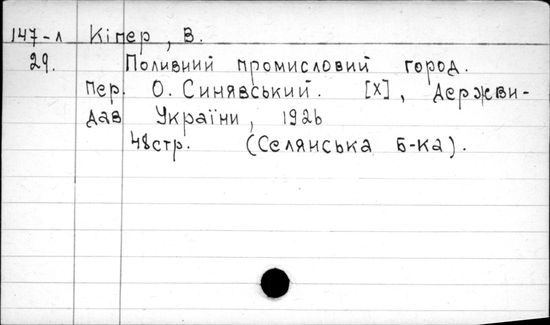 147-л Кіпер, В.
29. Поливний промисловий город.
пер. О. Синявський. [Х], Держви-
дав України, 1926
48стр. (Селянська б-ка).